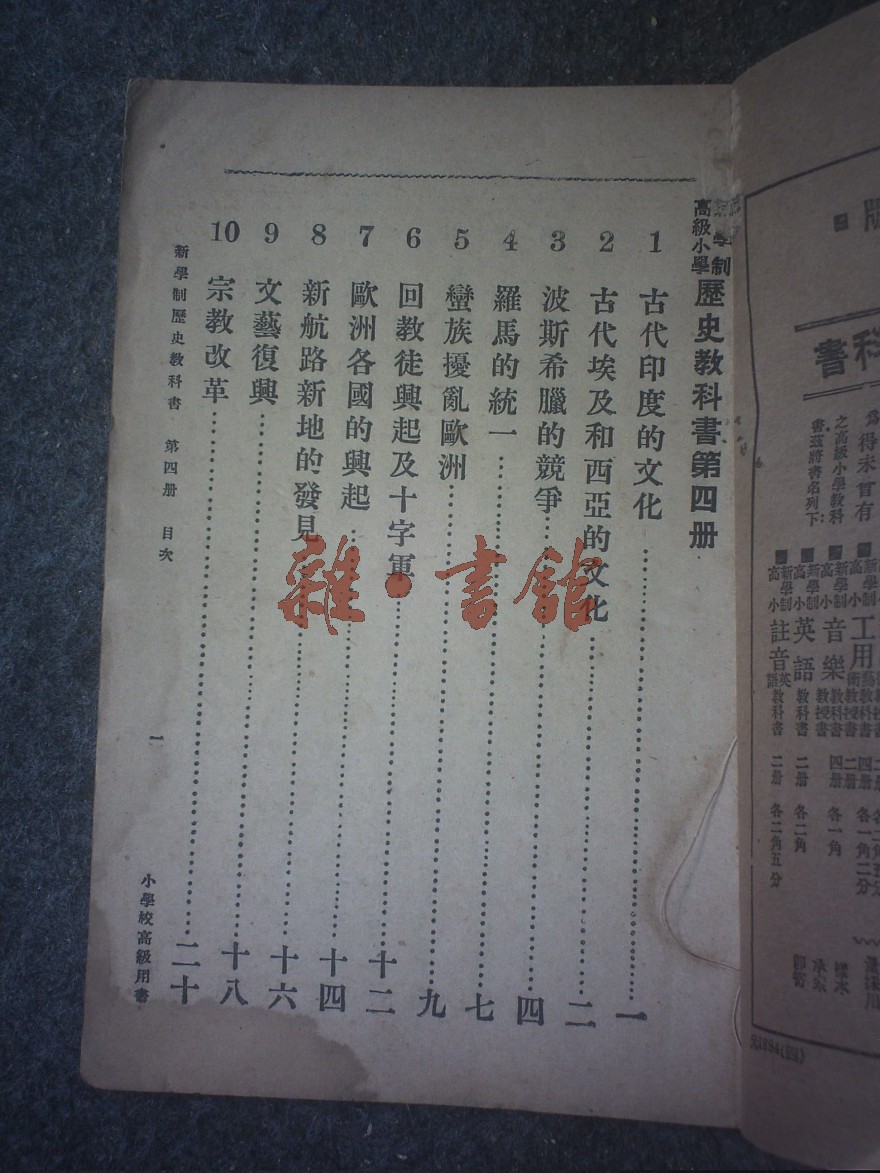 新學制
高級小學
歷史教科書第四册
1 古代印度的文化……一
2 古代埃及和西亞的文化……二
3 波斯希臘的競爭……四
4 羅馬的統一……七
5 蠻族擾亂歐洲……九
6 回教徒興起及十字軍……十二
7 歐洲各國的興起……十四
8 新航路新地的發見……十六
9 文藝復興……十八
10 宗教改革……二十
新學制歷史教科書 第四册 目次
一
小學校高級用書
雜·書館
科書
得未曾有
之高級小學教科
書茲將書名列下:
新學制
高小
音樂
教科書
教授書
四册
各一角
新學制
高小
英語
教科書
二册
各二角
新學制
高小
註音
英語
教科書
二册
各二角五分